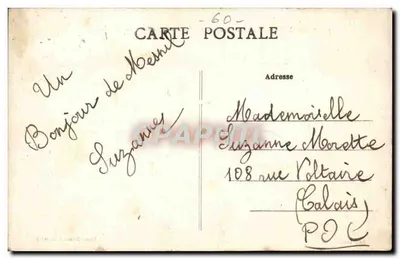 -60-
CARTE POSTALE
Un
Bonjour de Mesnil
Suzanne
Adresse
Mademoiselle
Suzanne Morette
108 rue Voltaire
(Calais)
P D C